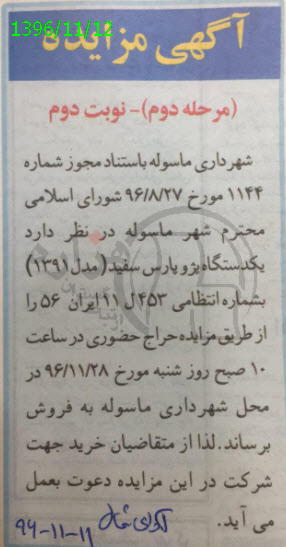 1396/11/12
آگهی مزایده
(مرحله دوم)- نوبت دوم
شهرداری ماسوله باستناد مجوز شماره
۱۱۴۴ مورخ ۹۶/۸/۲۷ شورای اسلامی
محترم شهر ماسوله در نظر دارد
یکدستگاه پژو پارس سفید (مدل ۱۳۹۱)
بشماره انتظامی ۴۵۳ل۱۱ ایران ۵۶ را
از طریق مزایده حراج حضوری در ساعت
۱۰ صبح روز شنبه مورخ ۹۶/۱۱/۲۸ در
محل شهرداری ماسوله به فروش
برساند. لذا از متقاضیان خرید جهت
شرکت در این مزایده دعوت بعمل
می آید.
۹۶-۱۱-۱۱